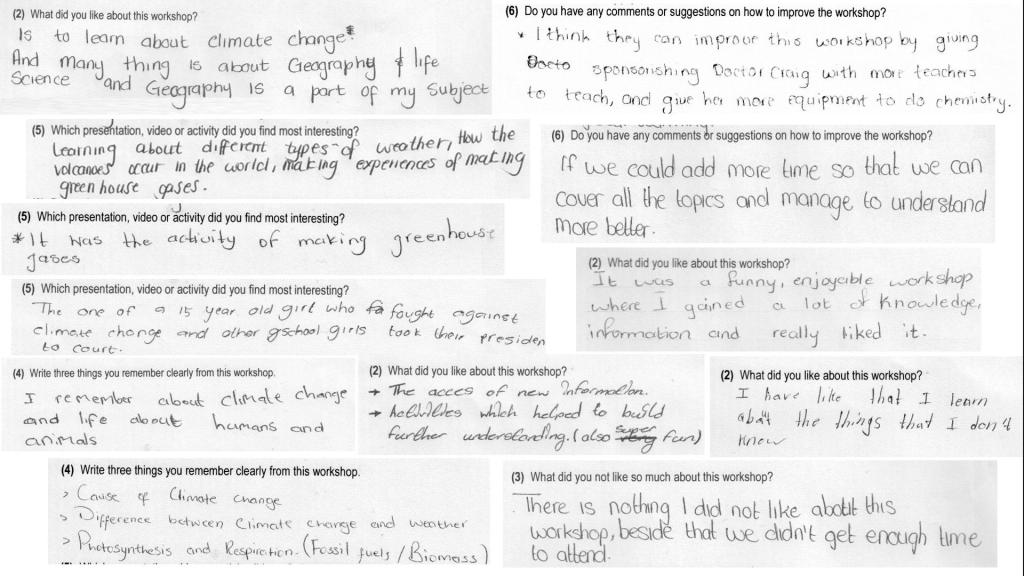 (2) What did you like about this workshop?
Is to learn about climate change
And many thing is about Geography & life
Science and Geography is a part of my Subject
(6) Do you have any comments or suggestions on how to improve the workshop?
* I think they can improve this workshop by giving
sponsorishing Doctor Craig with more teachers
to teach, and give her more equipment to do chemistry.
(5) Which presentation, video or activity did you find most interesting?
Learning about different types of weather, How the
volcanoes occur in the world, making experiences of making
green house gases.
(6) Do you have any comments or suggestions on how to improve the workshop?
If we could add more time so that we can
cover all the topics and manage to understand
more better.
(5) Which presentation, video or activity did you find most interesting?
*It was the activity of making greenhouse
gases
(2) What did you like about this workshop?
It was a funny, enjoyable workshop
where I gained a lot of knowledge,
information and really liked it.
(5) Which presentation, video or activity did you find most interesting?
The one of a 15 year old girl who fought against
climate change and other school girls took their presiden
to court.
(4) Write three things you remember clearly from this workshop.
I remember about climate change
and life about humans and
animals
(2) What did you like about this workshop?
→ The acces of new information.
→ Activities which helped to build
further understanding. (also super fun)
(2) What did you like about this workshop?
I have like that I learn
about the things that I don't
know
(4) Write three things you remember clearly from this workshop.
> Cause of Climate change
> Difference between Climate change and weather
> Photosynthesis and Respiration. (Fossil fuels / Biomass)
(3) What did you not like so much about this workshop?
There is nothing I did not like about this
workshop, beside that we didn't get enough time
to attend.